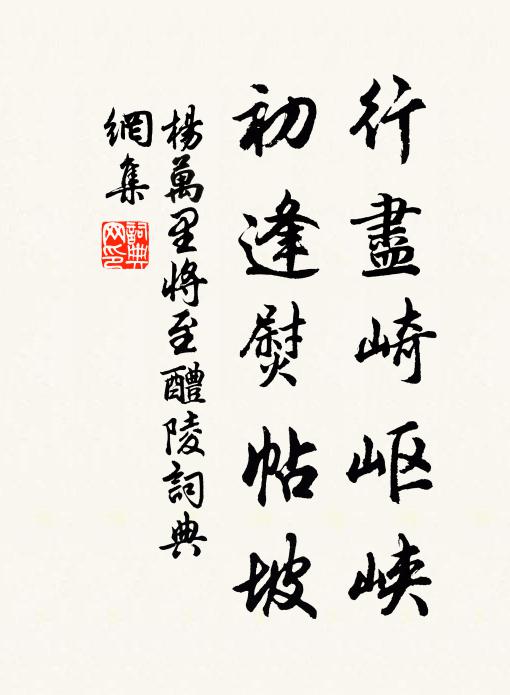 行盡崎岖峽
初逢熨帖坡
楊萬里将至醴陵詞典
網集
詞典
网印